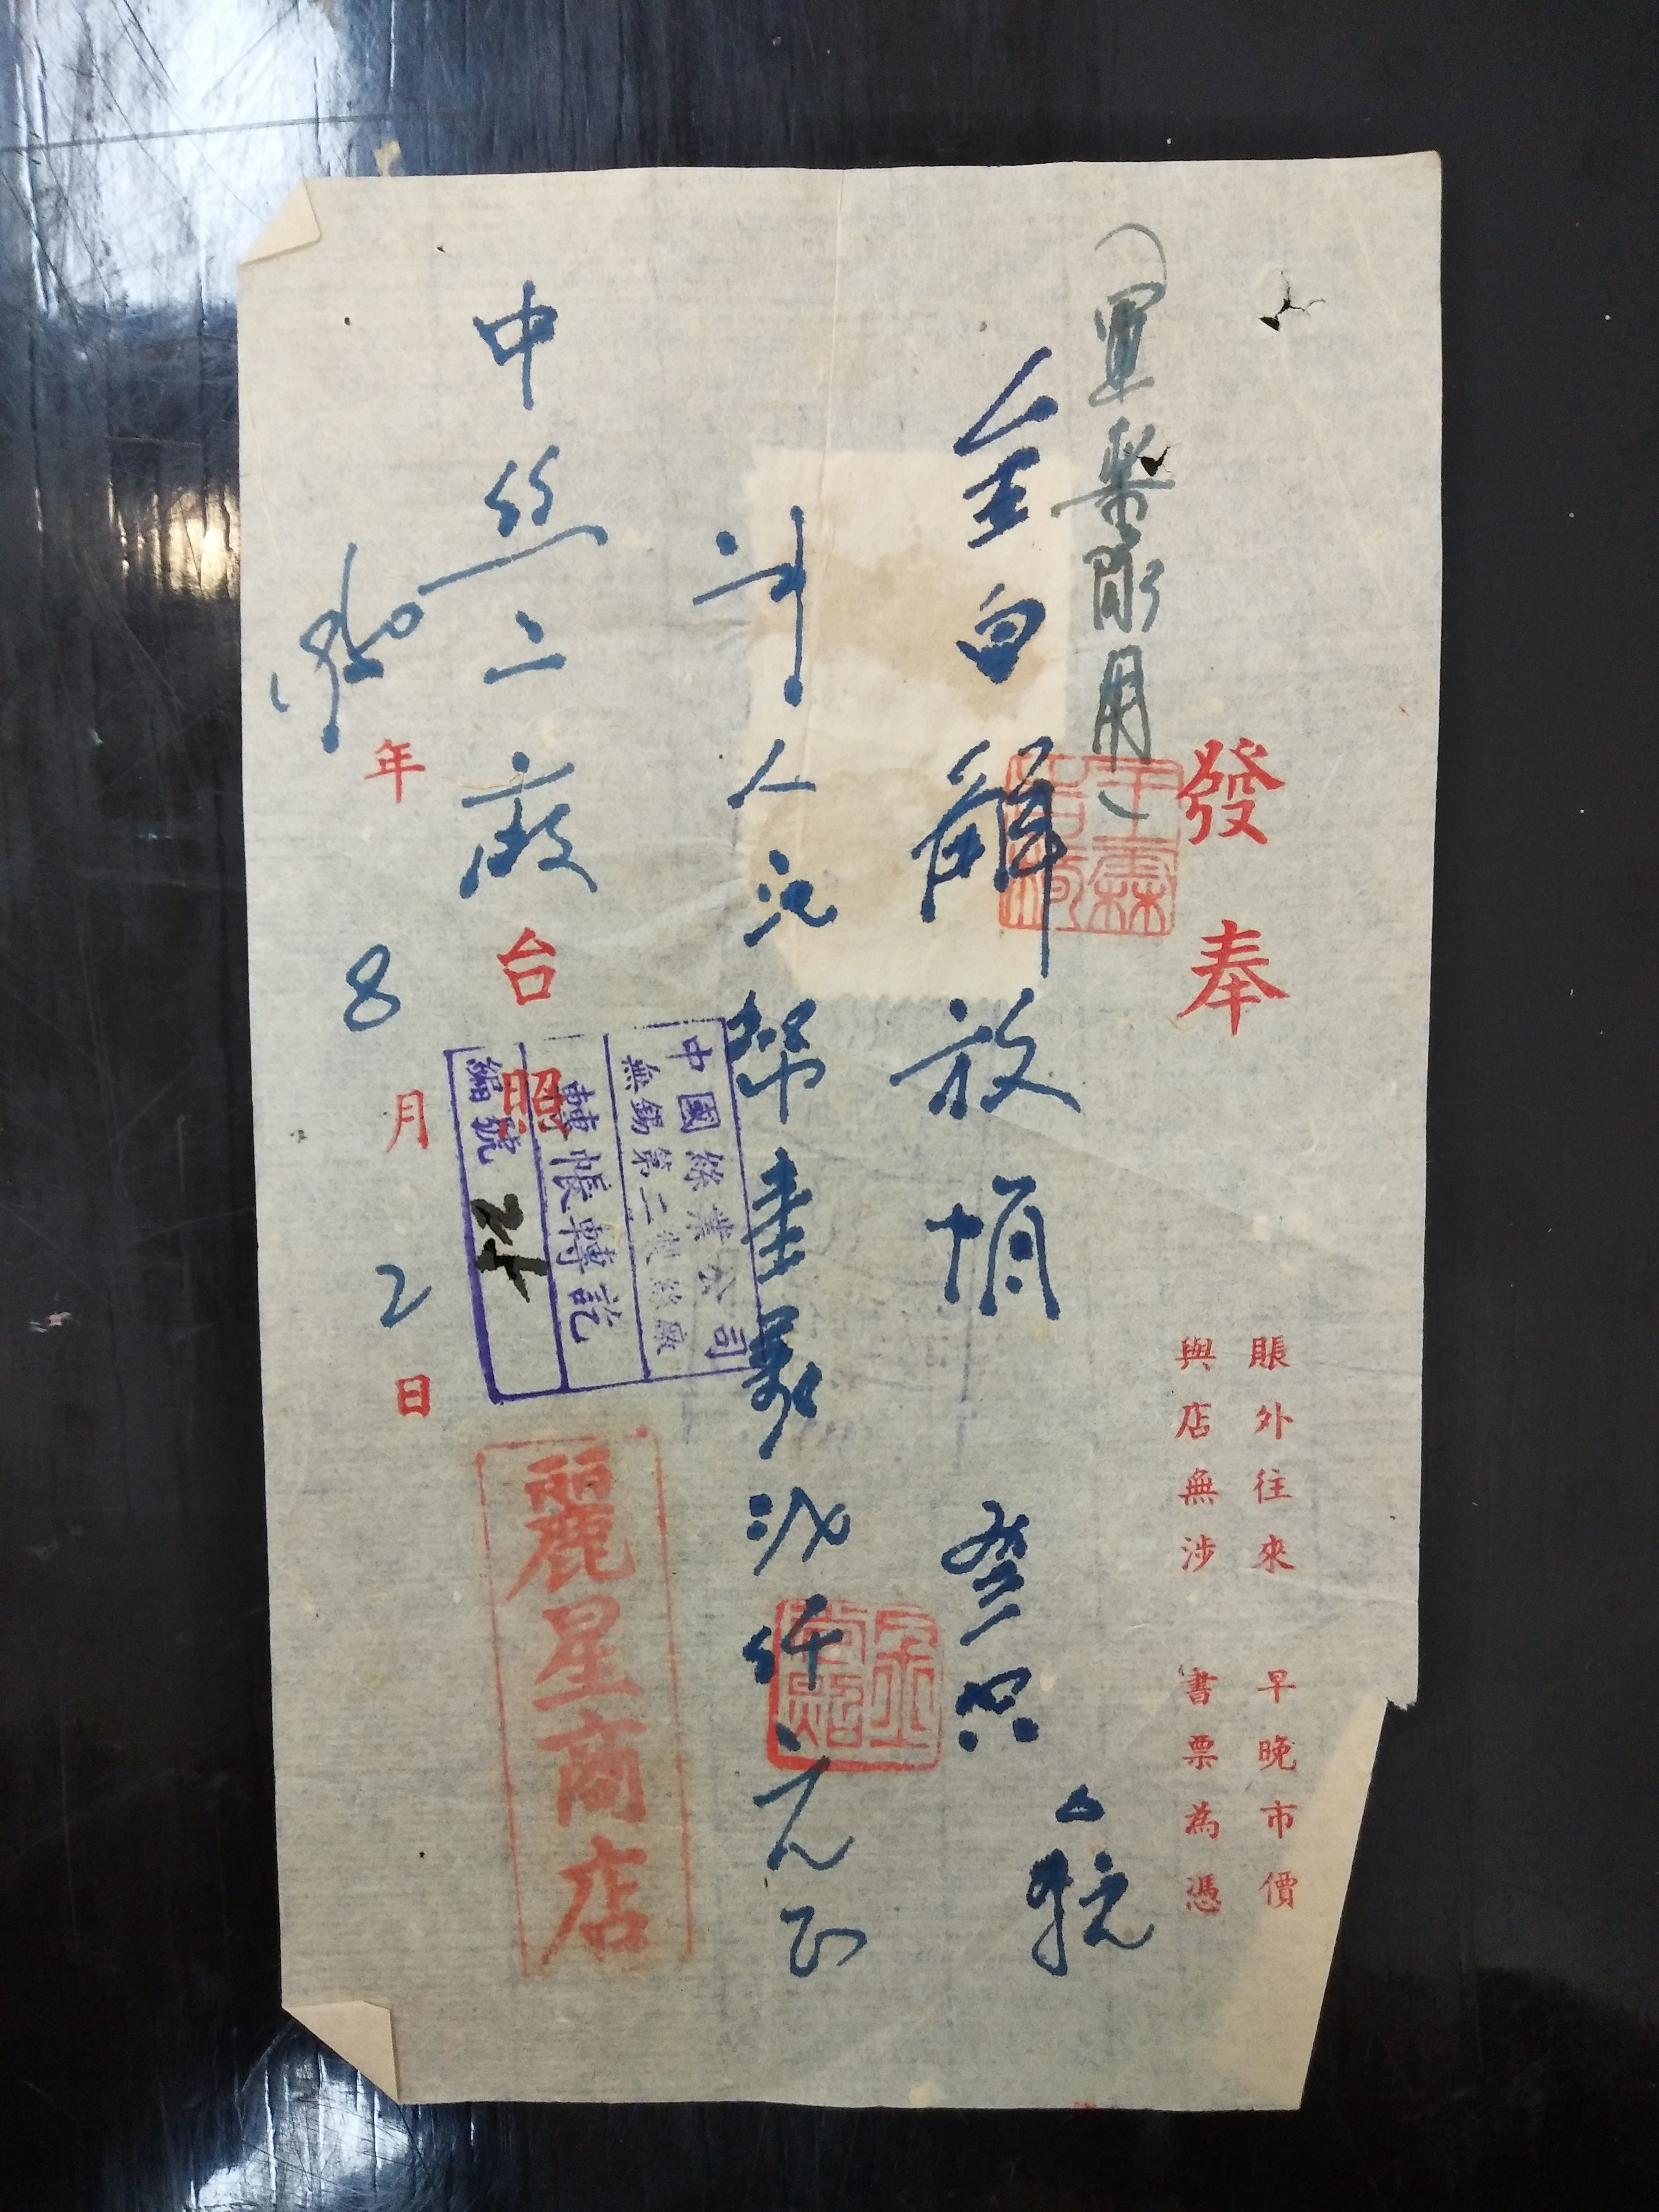 發奉
賬外往來 早晚市價
與店無涉 書票為憑
(軍樂隊用)
全白解放帽 叁只
計人民幣壹萬貳仟元正
中絲二廠 台照
年8月2日
麗星商店
中國絲業公司
無錫第二製絲廠
轉帳轉訖
編號